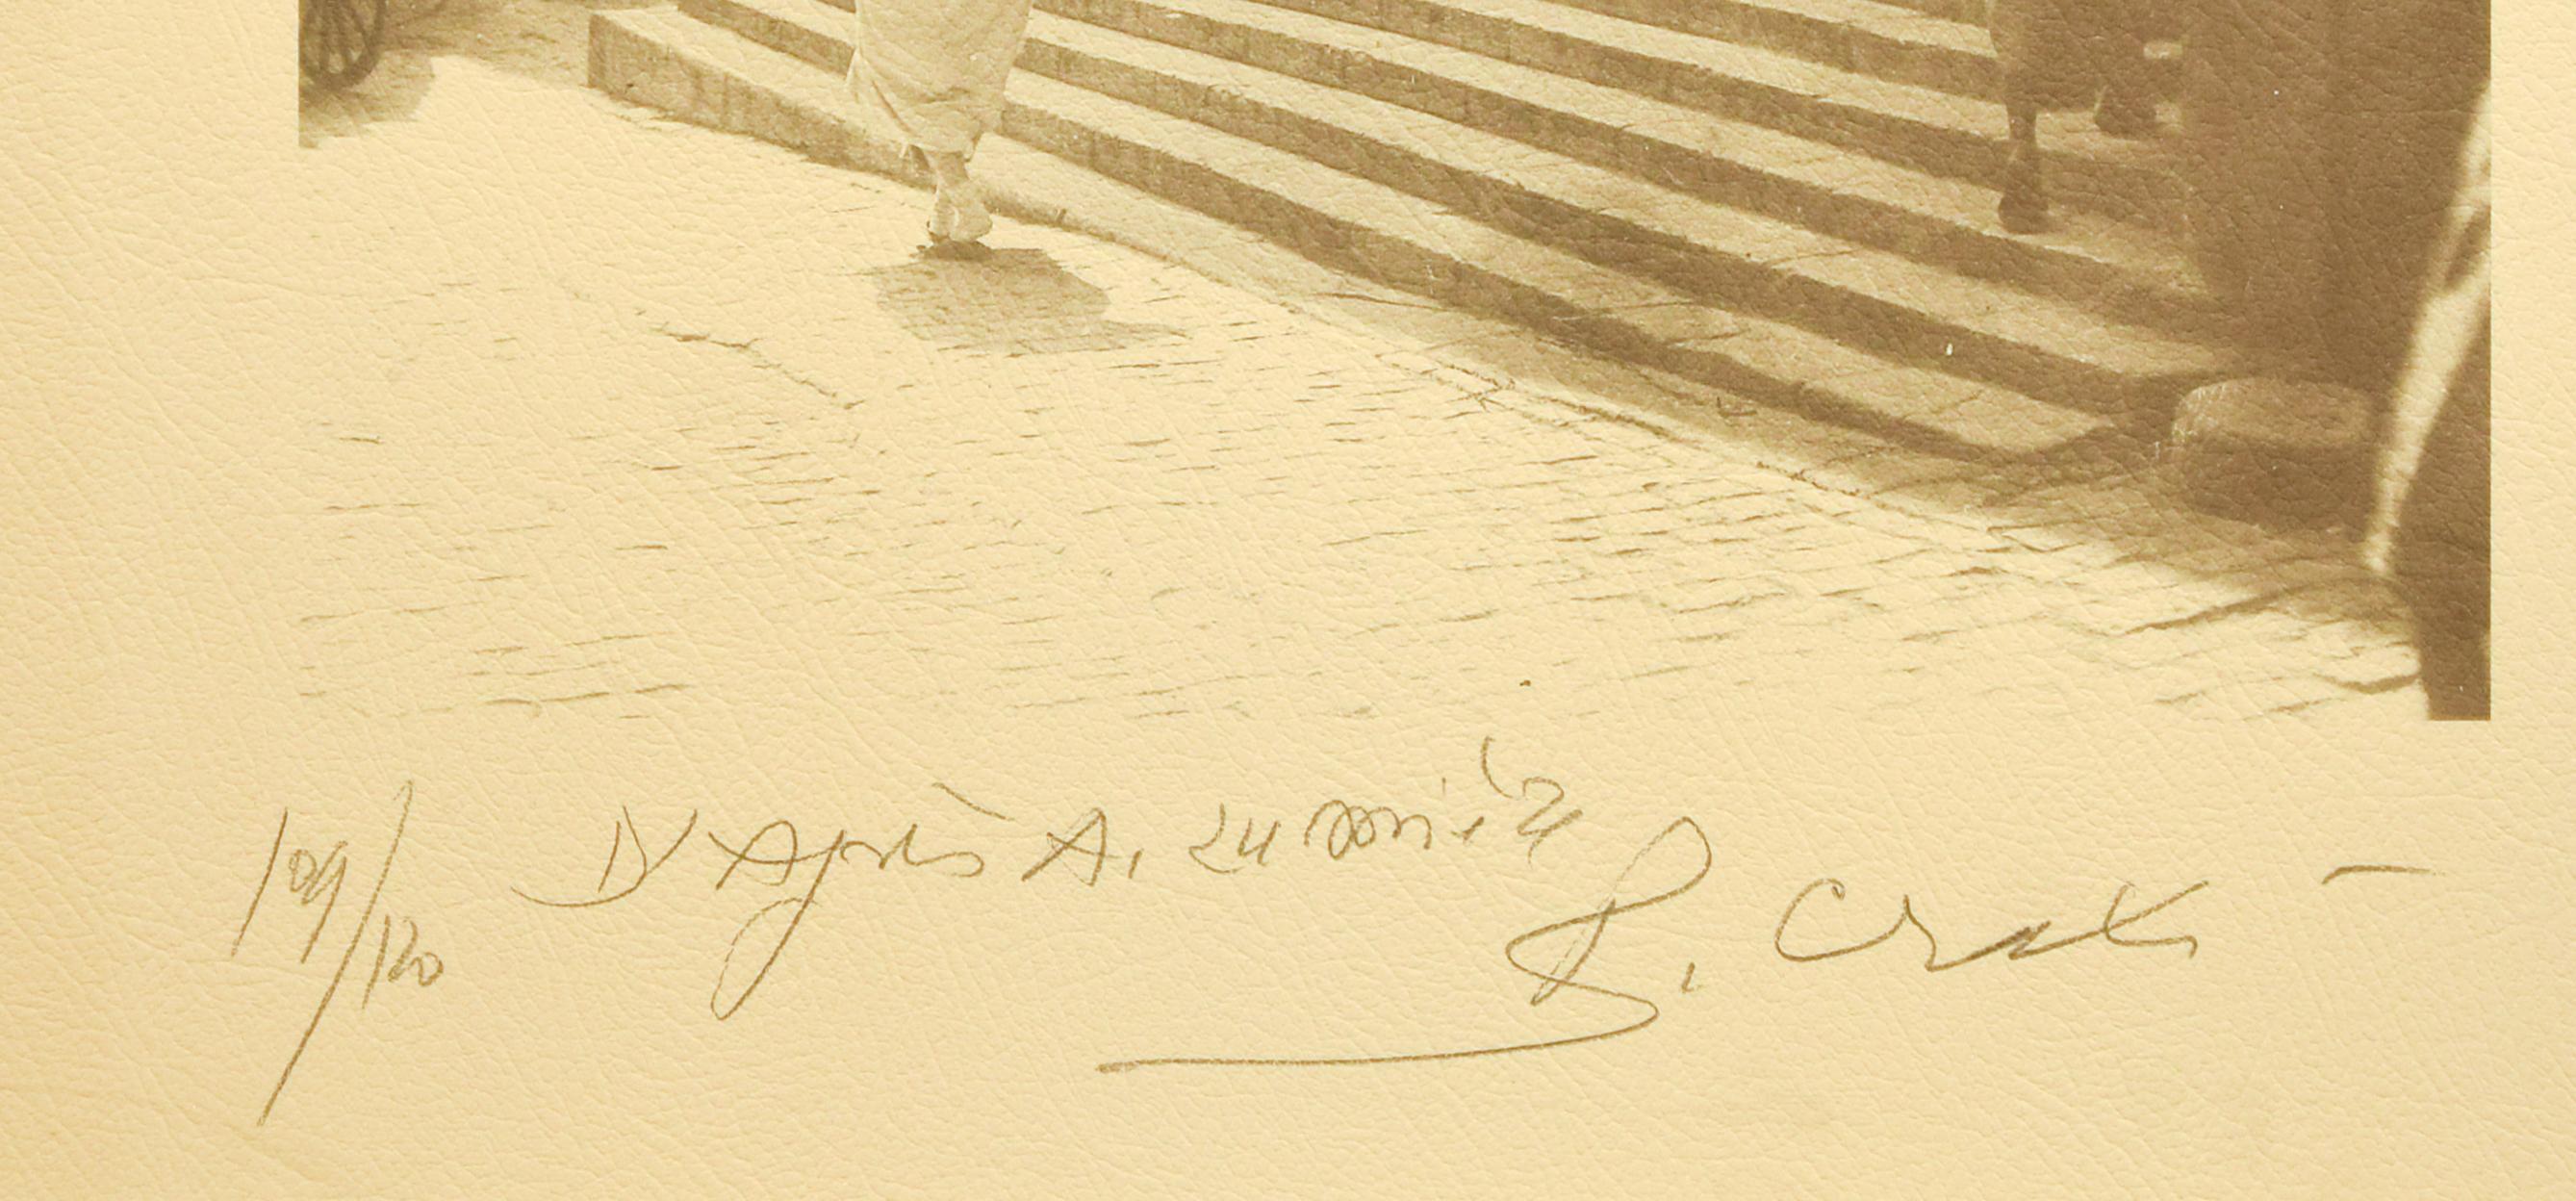 109/120 D'Après A. Lumière